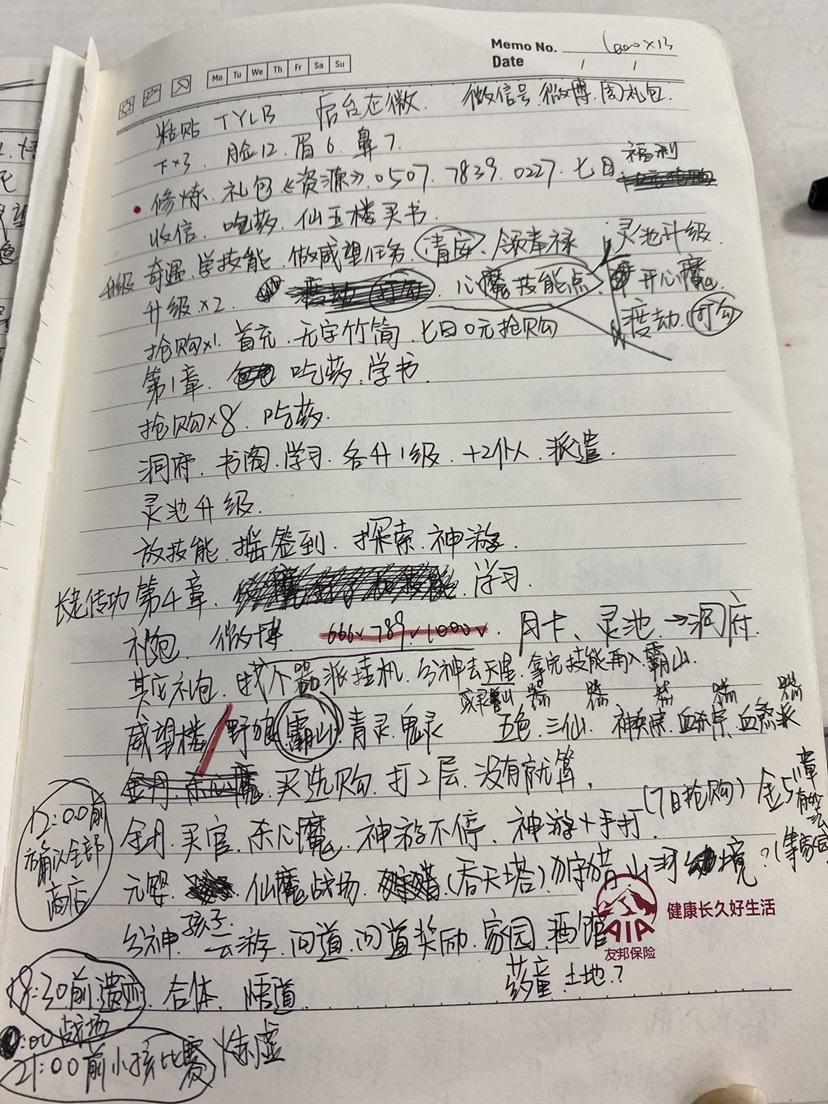 Memo No. 1000×13
Mo Tu We Th Fr Sa Su
Date / /
粘贴 TYLB 后台在微. 微信号.微博.周礼包
下×3. 脸12.眉6.鼻7.
修炼.礼包《资源》.0507.7839.0227.七日福利
收信.吃药.仙玉楼买书
升级 奇遇.学技能.做威望任务.清安.领奉禄 灵池升级
升级×2. 心魔技能点. 开心魔
渡劫.可勾
抢购×1.首充.无字竹简.七日0元抢购
第1章. 吃药.学书.
抢购×8.吃药.
洞府.书阁.学习.各升1级.+2仆人.派遣.
灵池升级.
放技能.摇签到.探索.神游.
长老传功 第4章. 学习.
礼包.微博. 666√789√1000√ 月卡、灵池→洞府.
其应礼包.找个器派挂机.分神去天星.拿完技能再入霸山.
威望楼/野狼 霸山.青灵.鬼录 五色.三仙.
买选购.打2层.没有就算.
12:00前 确认全部 商店
金丹.买官.杀心魔.神游不停.神游+手打.(7日抢购)
元婴. 仙魔战场. (吞天塔)
分神.孩子.云游.问道.问道奖励.家园.酒馆
药童.土地?
18:30前遗迹.合体.悟道
:00战场
21:00前小孩比赛 炼虚
AIA
友邦保险
健康长久好生活